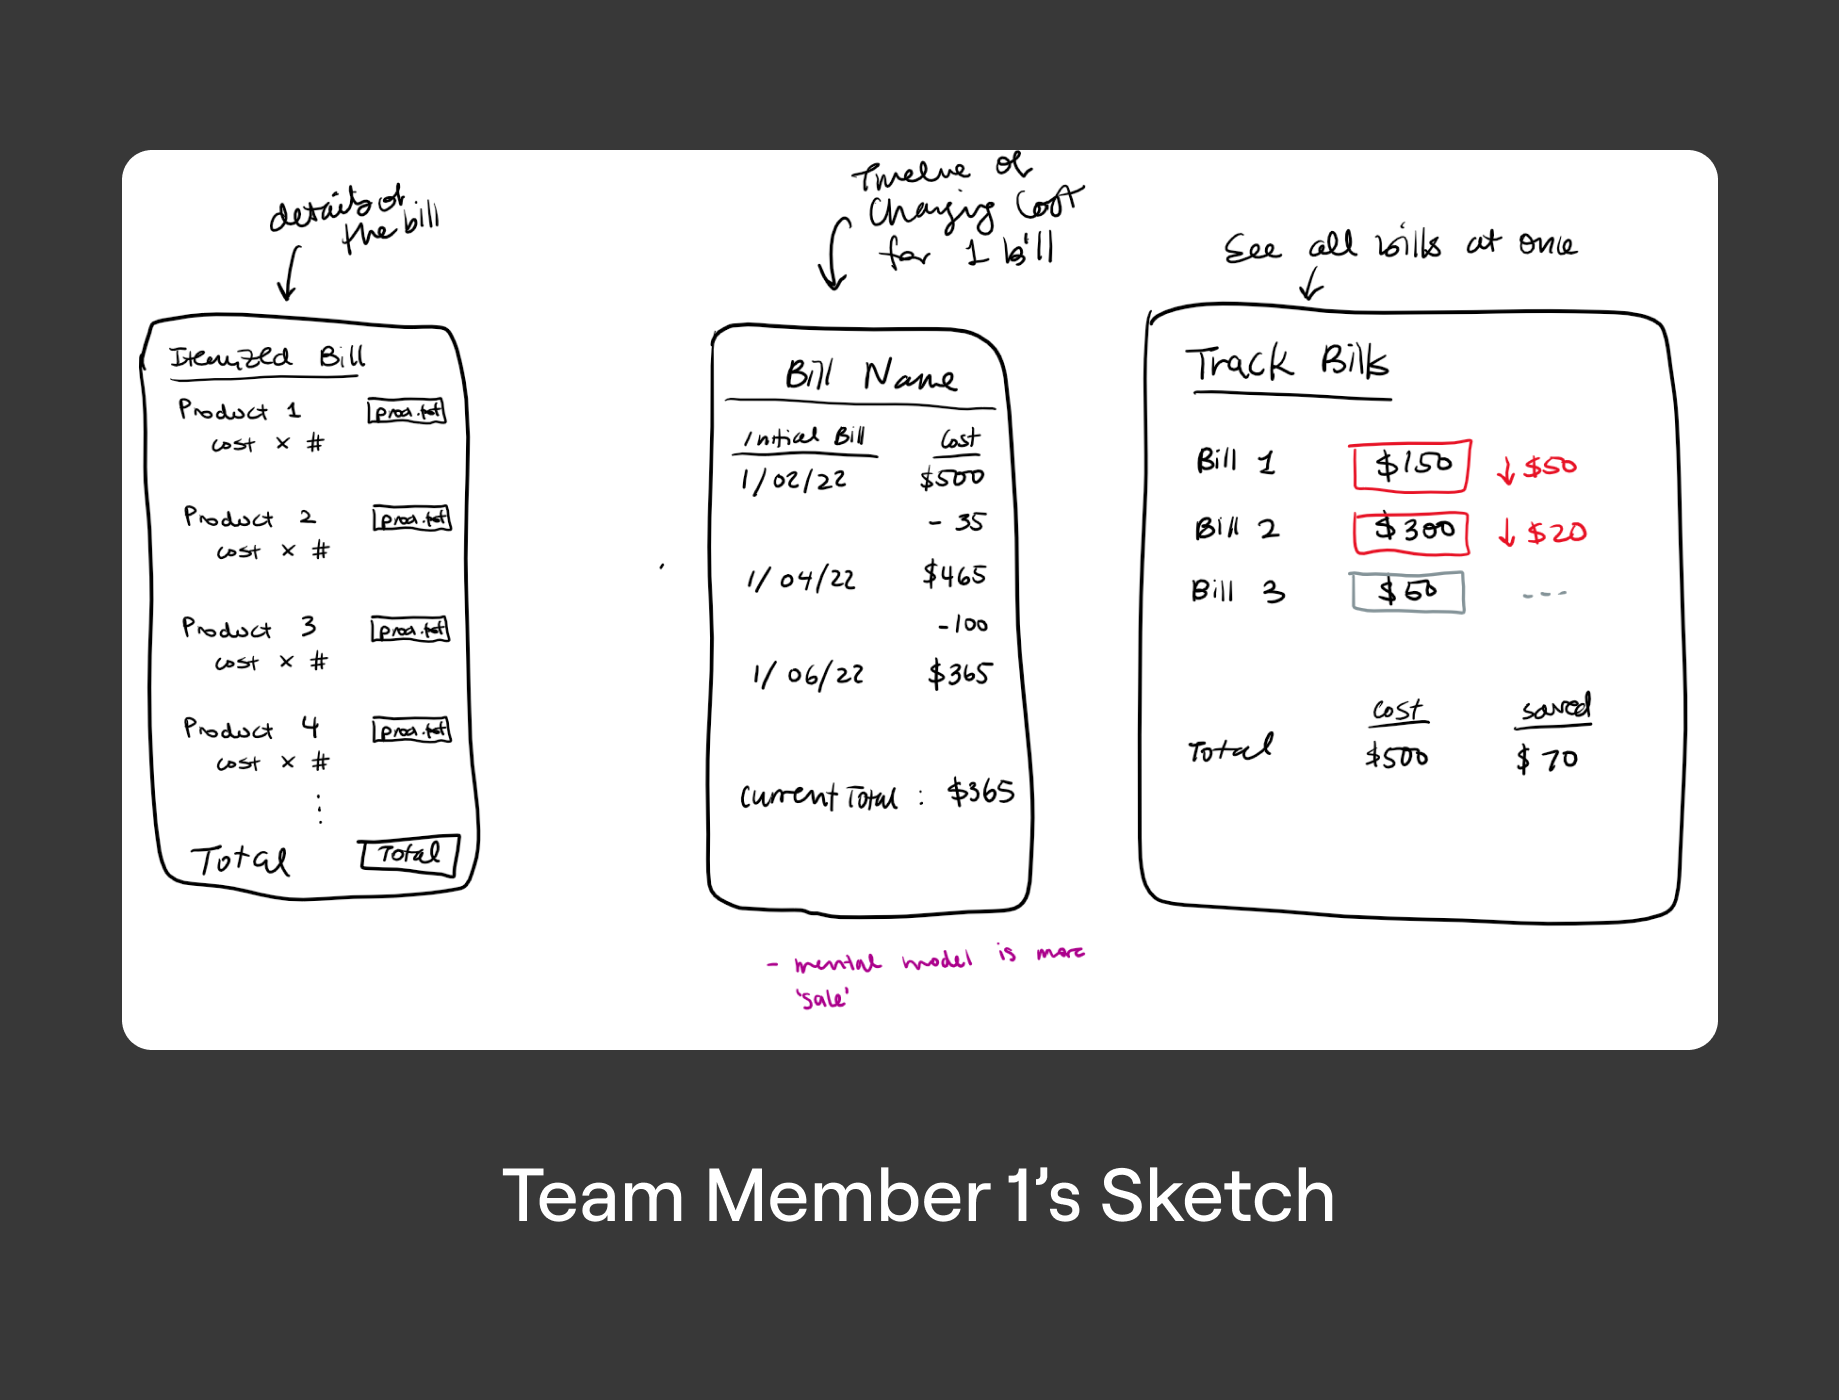 details of
the bill
Itemized Bill
Product 1 prod. tot
cost x #
Product 2 prod. tot
cost x #
Product 3 prod. tot
cost x #
Product 4 prod. tot
cost x #
⋮
Total Total
Timeline of
Changing Cost
for 1 bill
Bill Name
Initial Bill Cost
1/02/22 $500
- 35
1/04/22 $465
-100
1/06/22 $365
Current Total : $365
- mental model is more
'sale'
See all bills at once
Track Bills
Bill 1 $150 ↓ $50
Bill 2 $300 ↓ $20
Bill 3 $60 ---
cost saved
Total $500 $70
Team Member 1’s Sketch